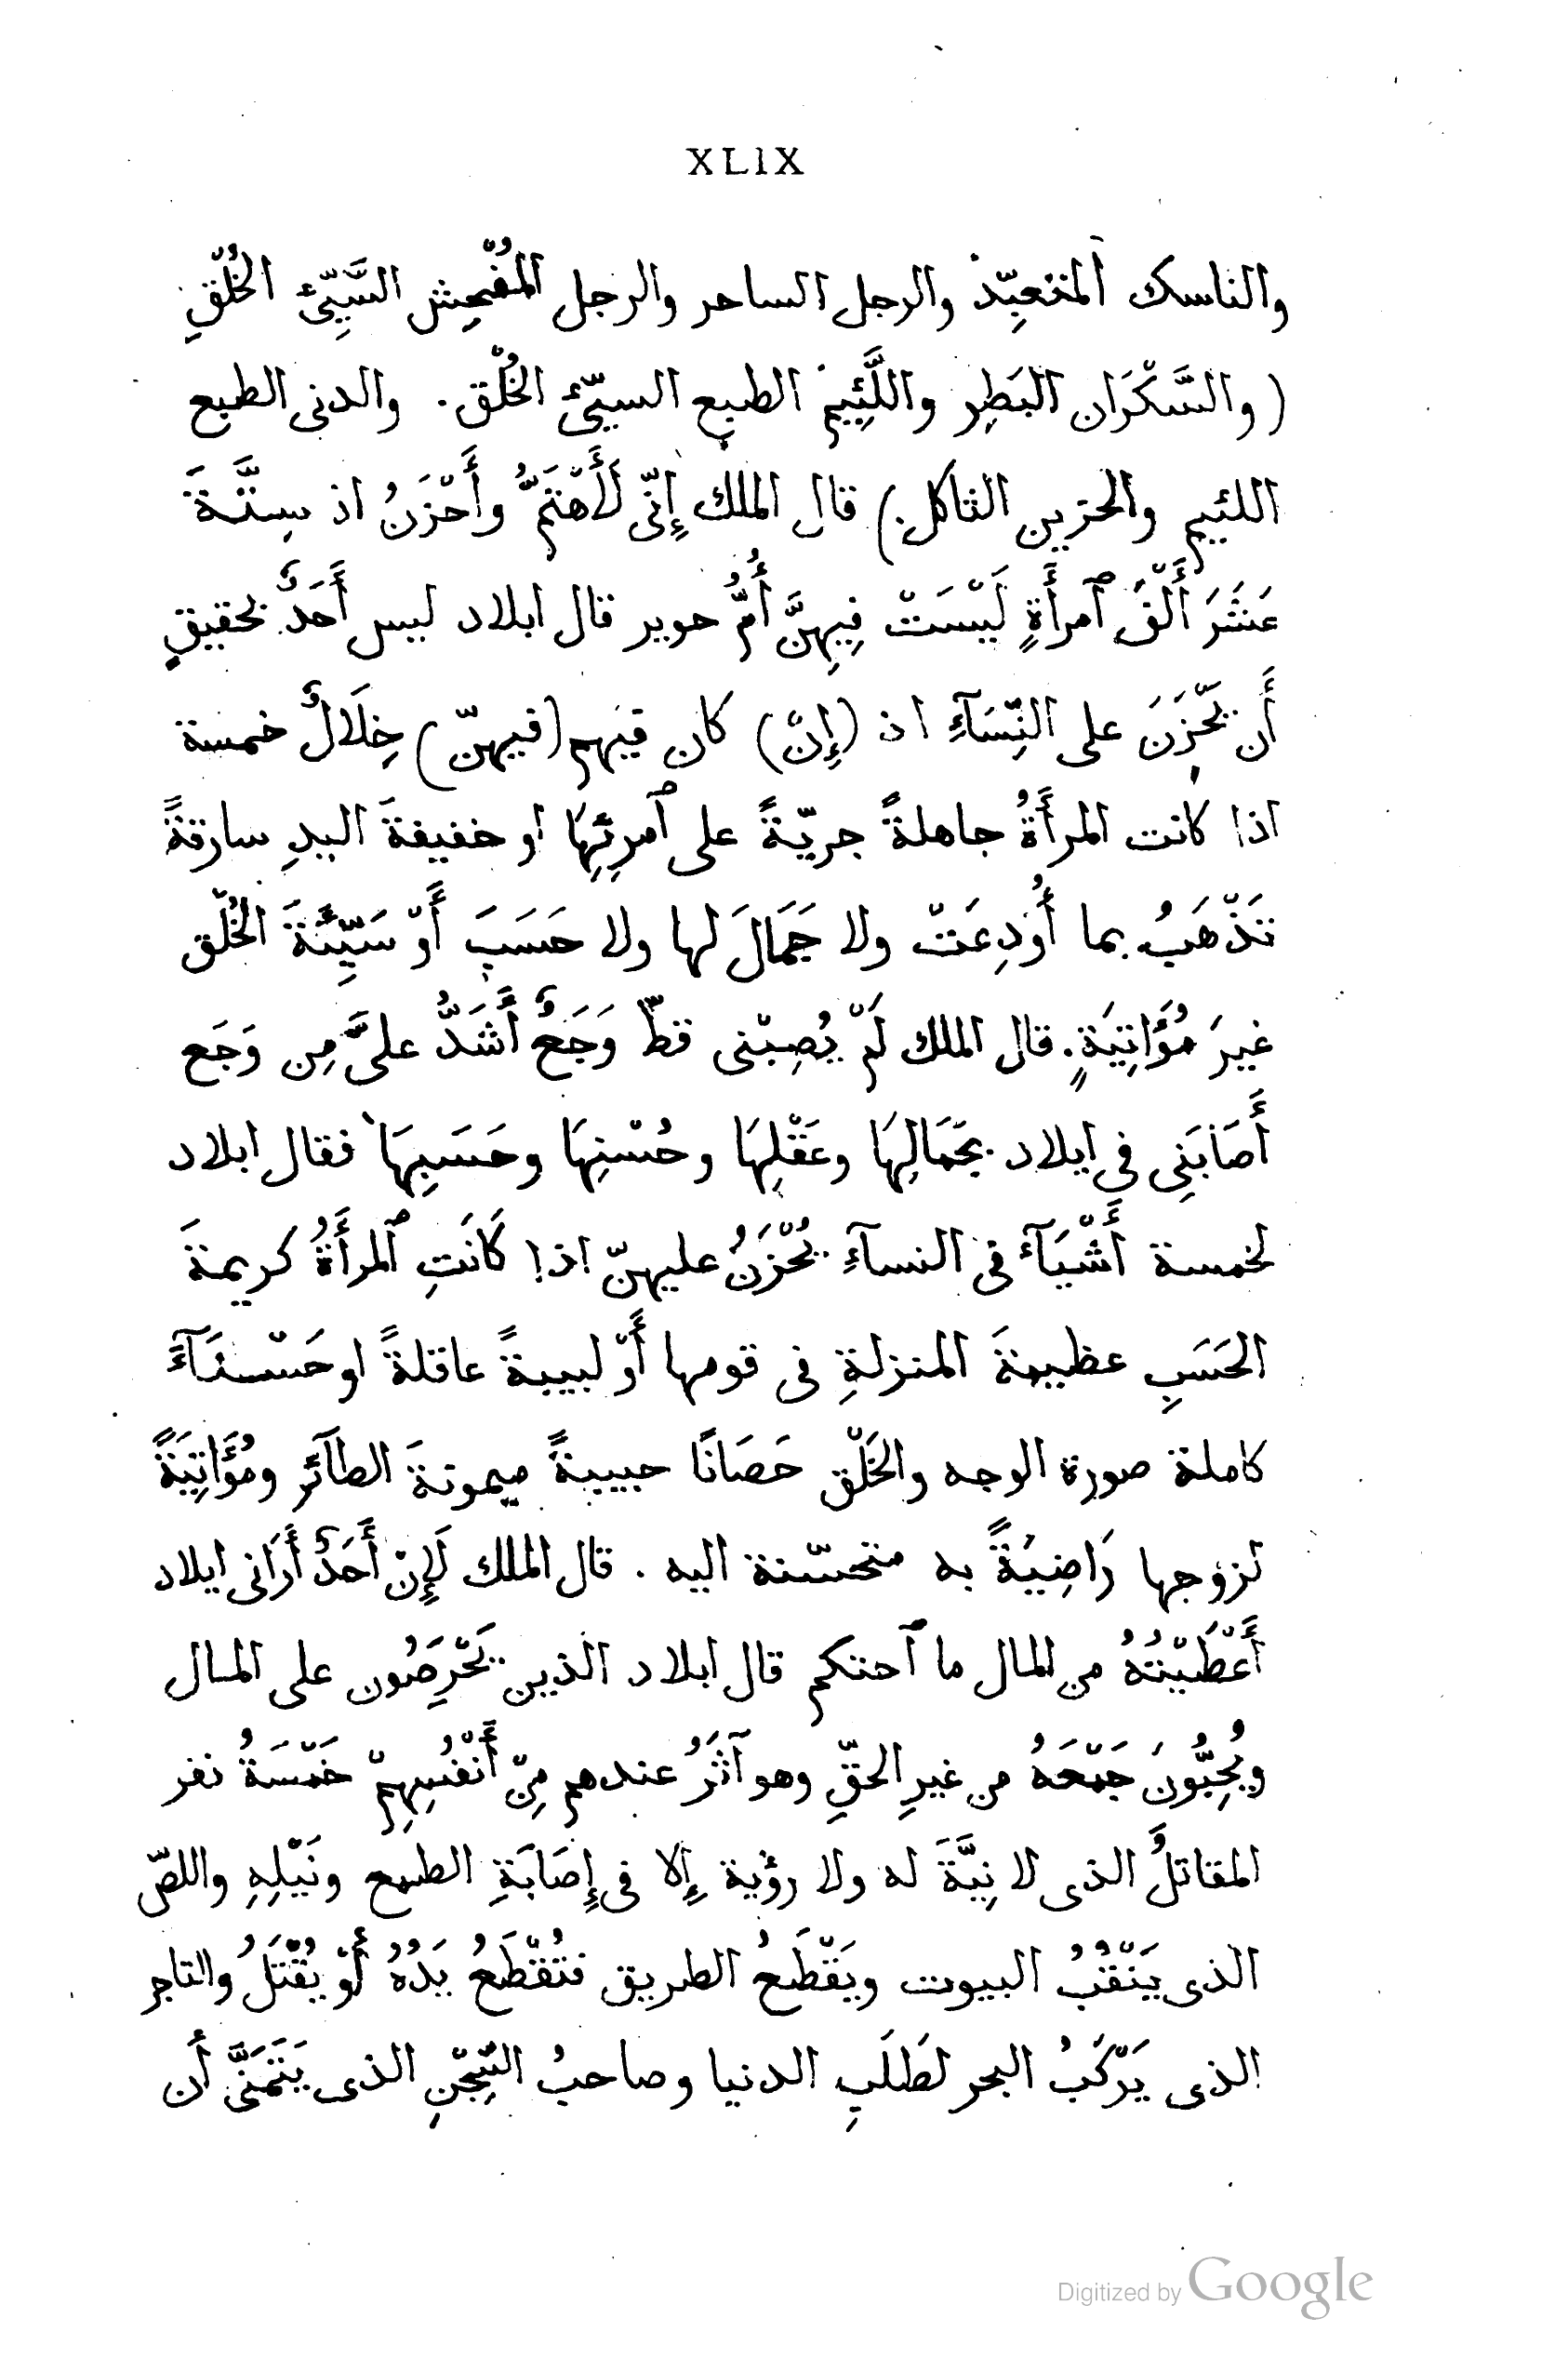 XLIX
والناسك المتعبِّد والرجل الساحر والرجل المُفْحِش السَّيِّئ الخُلْقِ
( والسَّكْرَان البَطِر واللَّئِيم الطبع السيّئ الخُلْق . والدنى الطبع
اللئيم والحزين الثاكل.) قال الملك إِنّى لَأَهْتَمُّ وأَحْزَنُ اذ سِتَّةَ
عَشَرَ أَلْفَ ٱمرأَةٍ لَيْسَتْ فِيهِنَّ أُمُّ جوير قال ابلاد ليس أَحَدٌ بحقيقٍ
أَن يَحْزَنَ على النِّسَآءِ اذ (إِنْ) كان فيهم (فيهنّ) خِلَالٌ خمسة
اذا كانت المرأَةُ جاهلةً جريّةً على ٱمرِئِهَا او خفيفةَ اليدِ سارقةً
تَذْهَبُ بما أُودِعَتْ ولا جَمَالَ لها ولا حَسَبَ أَوْ سَيِّئَةَ الخُلْق
غيرَ مُؤَاتِيَةٍ. قال الملك لَمْ يُصِبْنى قطّ وَجَعٌ أَشَدُّ علىَّ مِن وَجَع
أَصَابَنِى فى ايلاد بجَمَالِهَا وعَقْلِهَا وحُسْنِهَا وحَسَبِهَا فقال ابلاد
لخمسة أَشْيَآءَ فى النسآءِ يُحْزَنُ عليهنّ اذا كَانَتِ ٱلمرأَةُ كريمةَ
الحَسَبِ عظيمةَ المنزلةِ فى قومها أَوْ لبيبةً عاقلةً او حَسْنَآءَ
كاملة صورة الوجه والخَلْق حَصَانًا حبيبةً ميمونةَ الطآئر ومُؤَاتِيَةً
لزوجها رَاضِيَةً به متحسّنة اليه . قال الملك لَإِنْ أَحَدٌ أَرَانى ايلاد
أَعْطَيْتُهُ من المال ما ٱحتكم قال ابلاد الذين يَحْرِصُون على المال
ويُحِبُّونَ جَمْعَهُ من غيرِ الحقِّ وهو آثَرُ عندهم مِنْ أَنْفُسِهِمْ خَمْسَةُ نفر
المقاتلُ الذى لا نِيَّةَ له ولا رؤية إِلا فى إِصَابَةِ الطمع ونَيْلِهِ واللصّ
الذى يَنْقُبُ البيوت ويَقْطَعُ الطريق فتُقْطَعُ يَدُهُ أَوْ يُقْتَلُ والتاجر
الذى يَرْكَبُ البحر لطَلَبِ الدنيا وصاحبُ السِّجْنِ الذى يَتَمَنَّى أَن
Digitized by Google